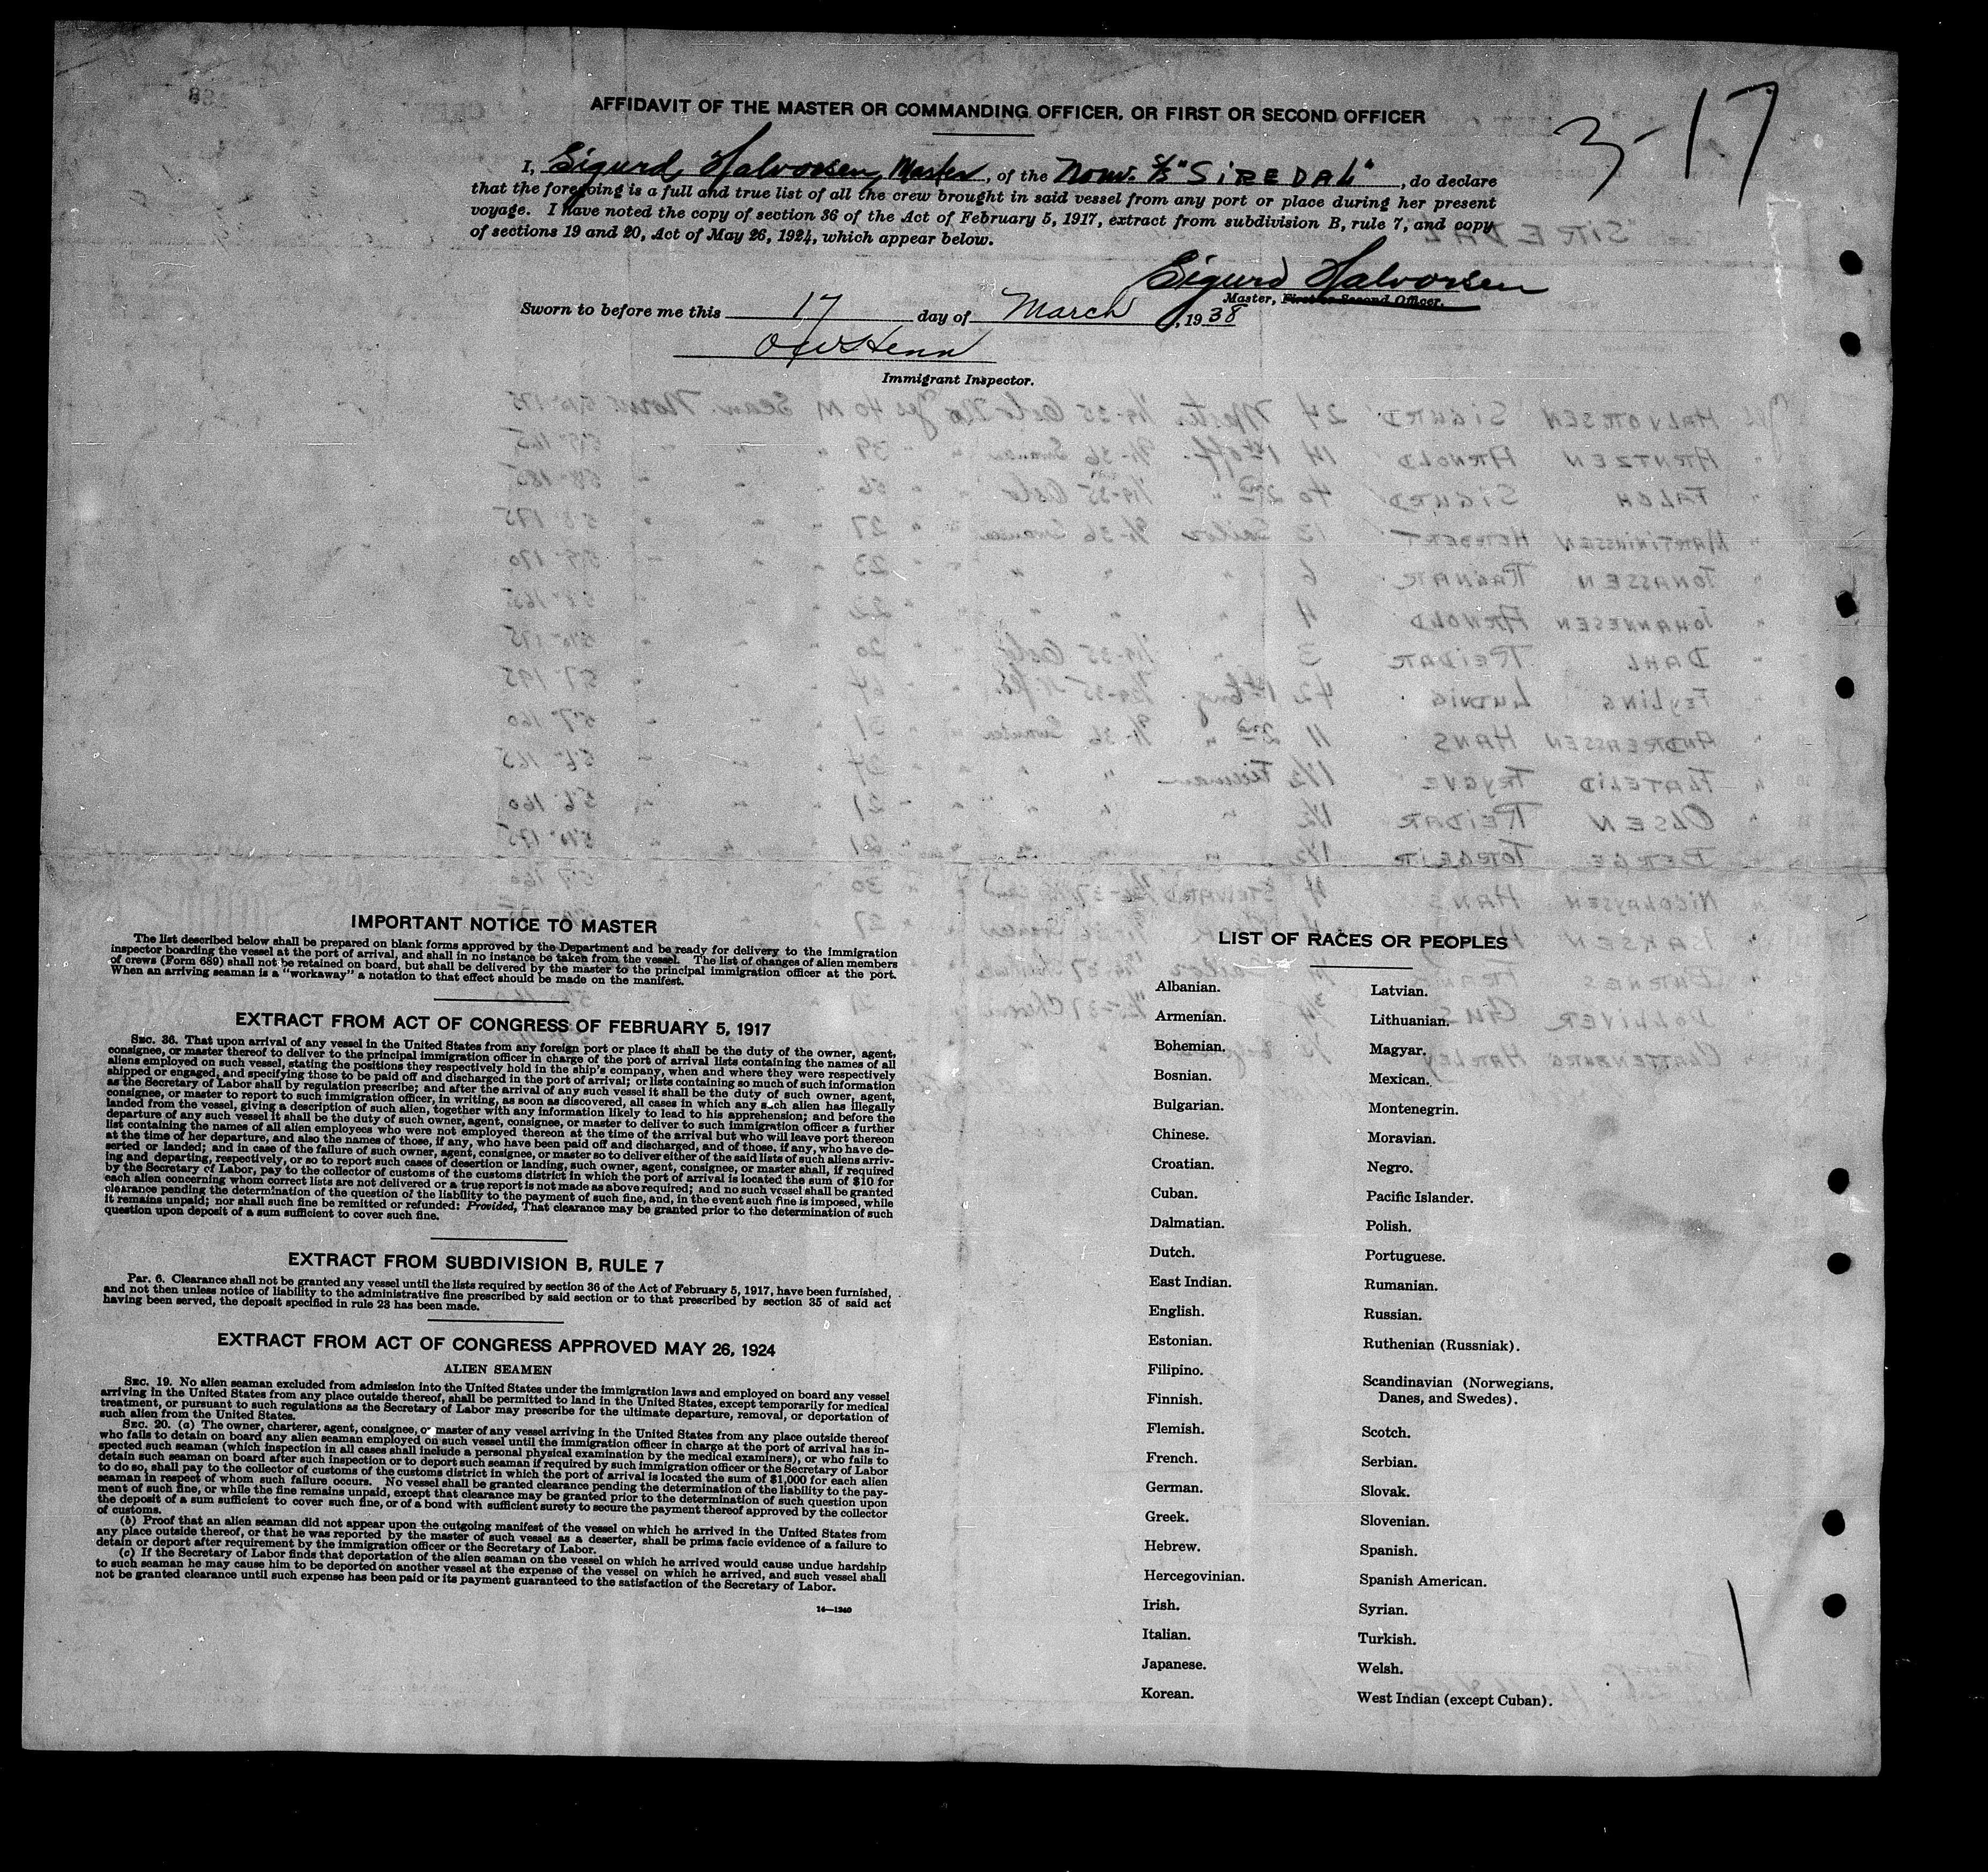 AFFIDAVIT OF THE MASTER OR COMMANDING OFFICER, OR FIRST OR SECOND OFFICER
3-17
I, Sigurd Halvorsen, Master, of the Norw. S/S "SIREDAL", do declare
that the foregoing is a full and true list of all the crew brought in said vessel from any port or place during her present
voyage. I have noted the copy of section 36 of the Act of February 5, 1917, extract from subdivision B, rule 7, and copy
of sections 19 and 20, Act of May 26, 1924, which appear below.
Sigurd Halvorsen
Master, First or Second Officer.
Sworn to before me this 17 day of March, 1938
Immigrant Inspector.
IMPORTANT NOTICE TO MASTER
The list described below shall be prepared on blank forms approved by the Department and be ready for delivery to the immigration
inspector boarding the vessel at the port of arrival, and shall in no instance be taken from the vessel. The list of changes of alien members
of crews (Form 689) shall not be retained on board, but shall be delivered by the master to the principal immigration officer at the port.
When an arriving seaman is a "workaway" a notation to that effect should be made on the manifest.
EXTRACT FROM ACT OF CONGRESS OF FEBRUARY 5, 1917
SEC. 36. That upon arrival of any vessel in the United States from any foreign port or place it shall be the duty of the owner, agent,
consignee, or master thereof to deliver to the principal immigration officer in charge of the port of arrival lists containing the names of all
aliens employed on such vessel, stating the positions they respectively hold in the ship's company, when and where they were respectively
shipped or engaged, and specifying those to be paid off and discharged in the port of arrival; or lists containing so much of such information
as the Secretary of Labor shall by regulation prescribe; and after the arrival of any such vessel it shall be the duty of such owner, agent,
consignee, or master to report to such immigration officer, in writing, as soon as discovered, all cases in which any such alien has illegally
landed from the vessel, giving a description of such alien, together with any information likely to lead to his apprehension; and before the
departure of any such vessel it shall be the duty of such owner, agent, consignee, or master to deliver to such immigration officer a further
list containing the names of all alien employees who were not employed thereon at the time of the arrival but who will leave port thereon
at the time of her departure, and also the names of those, if any, who have been paid off and discharged, and of those, if any, who have de-
serted or landed; and in case of the failure of such owner, agent, consignee, or master so to deliver either of the said lists of such aliens arriv-
ing and departing, respectively, or so to report such cases of desertion or landing, such owner, agent, consignee, or master shall, if required
by the Secretary of Labor, pay to the collector of customs of the customs district in which the port of arrival is located the sum of $10 for
each alien concerning whom correct lists are not delivered or a true report is not made as above required; and no such vessel shall be granted
clearance pending the determination of the question of the liability to the payment of such fine, and, in the event such fine is imposed, while
it remains unpaid; nor shall such fine be remitted or refunded: Provided, That clearance may be granted prior to the determination of such
question upon deposit of a sum sufficient to cover such fine.
EXTRACT FROM SUBDIVISION B, RULE 7
Par. 6. Clearance shall not be granted any vessel until the lists required by section 36 of the Act of February 5, 1917, have been furnished,
and not then unless notice of liability to the administrative fine prescribed by said section or to that prescribed by section 35 of said act
having been served, the deposit specified in rule 23 has been made.
EXTRACT FROM ACT OF CONGRESS APPROVED MAY 26, 1924
ALIEN SEAMEN
SEC. 19. No alien seaman excluded from admission into the United States under the immigration laws and employed on board any vessel
arriving in the United States from any place outside thereof, shall be permitted to land in the United States, except temporarily for medical
treatment, or pursuant to such regulations as the Secretary of Labor may prescribe for the ultimate departure, removal, or deportation of
such alien from the United States.
SEC. 20. (a) The owner, charterer, agent, consignee, or master of any vessel arriving in the United States from any place outside thereof
who fails to detain on board any alien seaman employed on such vessel until the immigration officer in charge at the port of arrival has in-
spected such seaman (which inspection in all cases shall include a personal physical examination by the medical examiners), or who fails to
detain such seaman on board after such inspection or to deport such seaman if required by such immigration officer or the Secretary of Labor
to do so, shall pay to the collector of customs of the customs district in which the port of arrival is located the sum of $1,000 for each alien
seaman in respect of whom such failure occurs. No vessel shall be granted clearance pending the determination of the liability to the pay-
ment of such fine, or while the fine remains unpaid, except that clearance may be granted prior to the determination of such question upon
the deposit of a sum sufficient to cover such fine, or of a bond with sufficient surety to secure the payment thereof approved by the collector
of customs.
(b) Proof that an alien seaman did not appear upon the outgoing manifest of the vessel on which he arrived in the United States from
any place outside thereof, or that he was reported by the master of such vessel as a deserter, shall be prima facie evidence of a failure to
detain or deport after requirement by the immigration officer or the Secretary of Labor.
(c) If the Secretary of Labor finds that deportation of the alien seaman on the vessel on which he arrived would cause undue hardship
to such seaman he may cause him to be deported on another vessel at the expense of the vessel on which he arrived, and such vessel shall
not be granted clearance until such expense has been paid or its payment guaranteed to the satisfaction of the Secretary of Labor.
14—1240
LIST OF RACES OR PEOPLES
Albanian.
Armenian.
Bohemian.
Bosnian.
Bulgarian.
Chinese.
Croatian.
Cuban.
Dalmatian.
Dutch.
East Indian.
English.
Estonian.
Filipino.
Finnish.
Flemish.
French.
German.
Greek.
Hebrew.
Hercegovinian.
Irish.
Italian.
Japanese.
Korean.
Latvian.
Lithuanian.
Magyar.
Mexican.
Montenegrin.
Moravian.
Negro.
Pacific Islander.
Polish.
Portuguese.
Rumanian.
Russian.
Ruthenian (Russniak).
Scandinavian (Norwegians,
Danes, and Swedes).
Scotch.
Serbian.
Slovak.
Slovenian.
Spanish.
Spanish American.
Syrian.
Turkish.
Welsh.
West Indian (except Cuban).